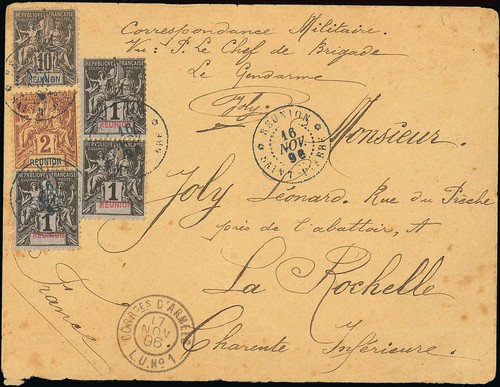 Correspondance Militaire.
Vu: P. Le Chef de Brigade
Le Gendarme
Joly
RÉPUBLIQUE FRANÇAISE
10
RÉUNION
RÉPUBLIQUE FRANÇAISE
1
RÉUNION
2
RÉUNION
1
RÉUNION
1
RÉUNION
RÉUNION
16
NOV.
96
SAINT-PIERRE
Monsieur.
Joly Léonard. Rue du Prêche
près de l'abattoir, A
La Rochelle
Charente Inférieure.
France
CORR^DES D'ARMÉES
17
NOV
96
L.U. N° 1